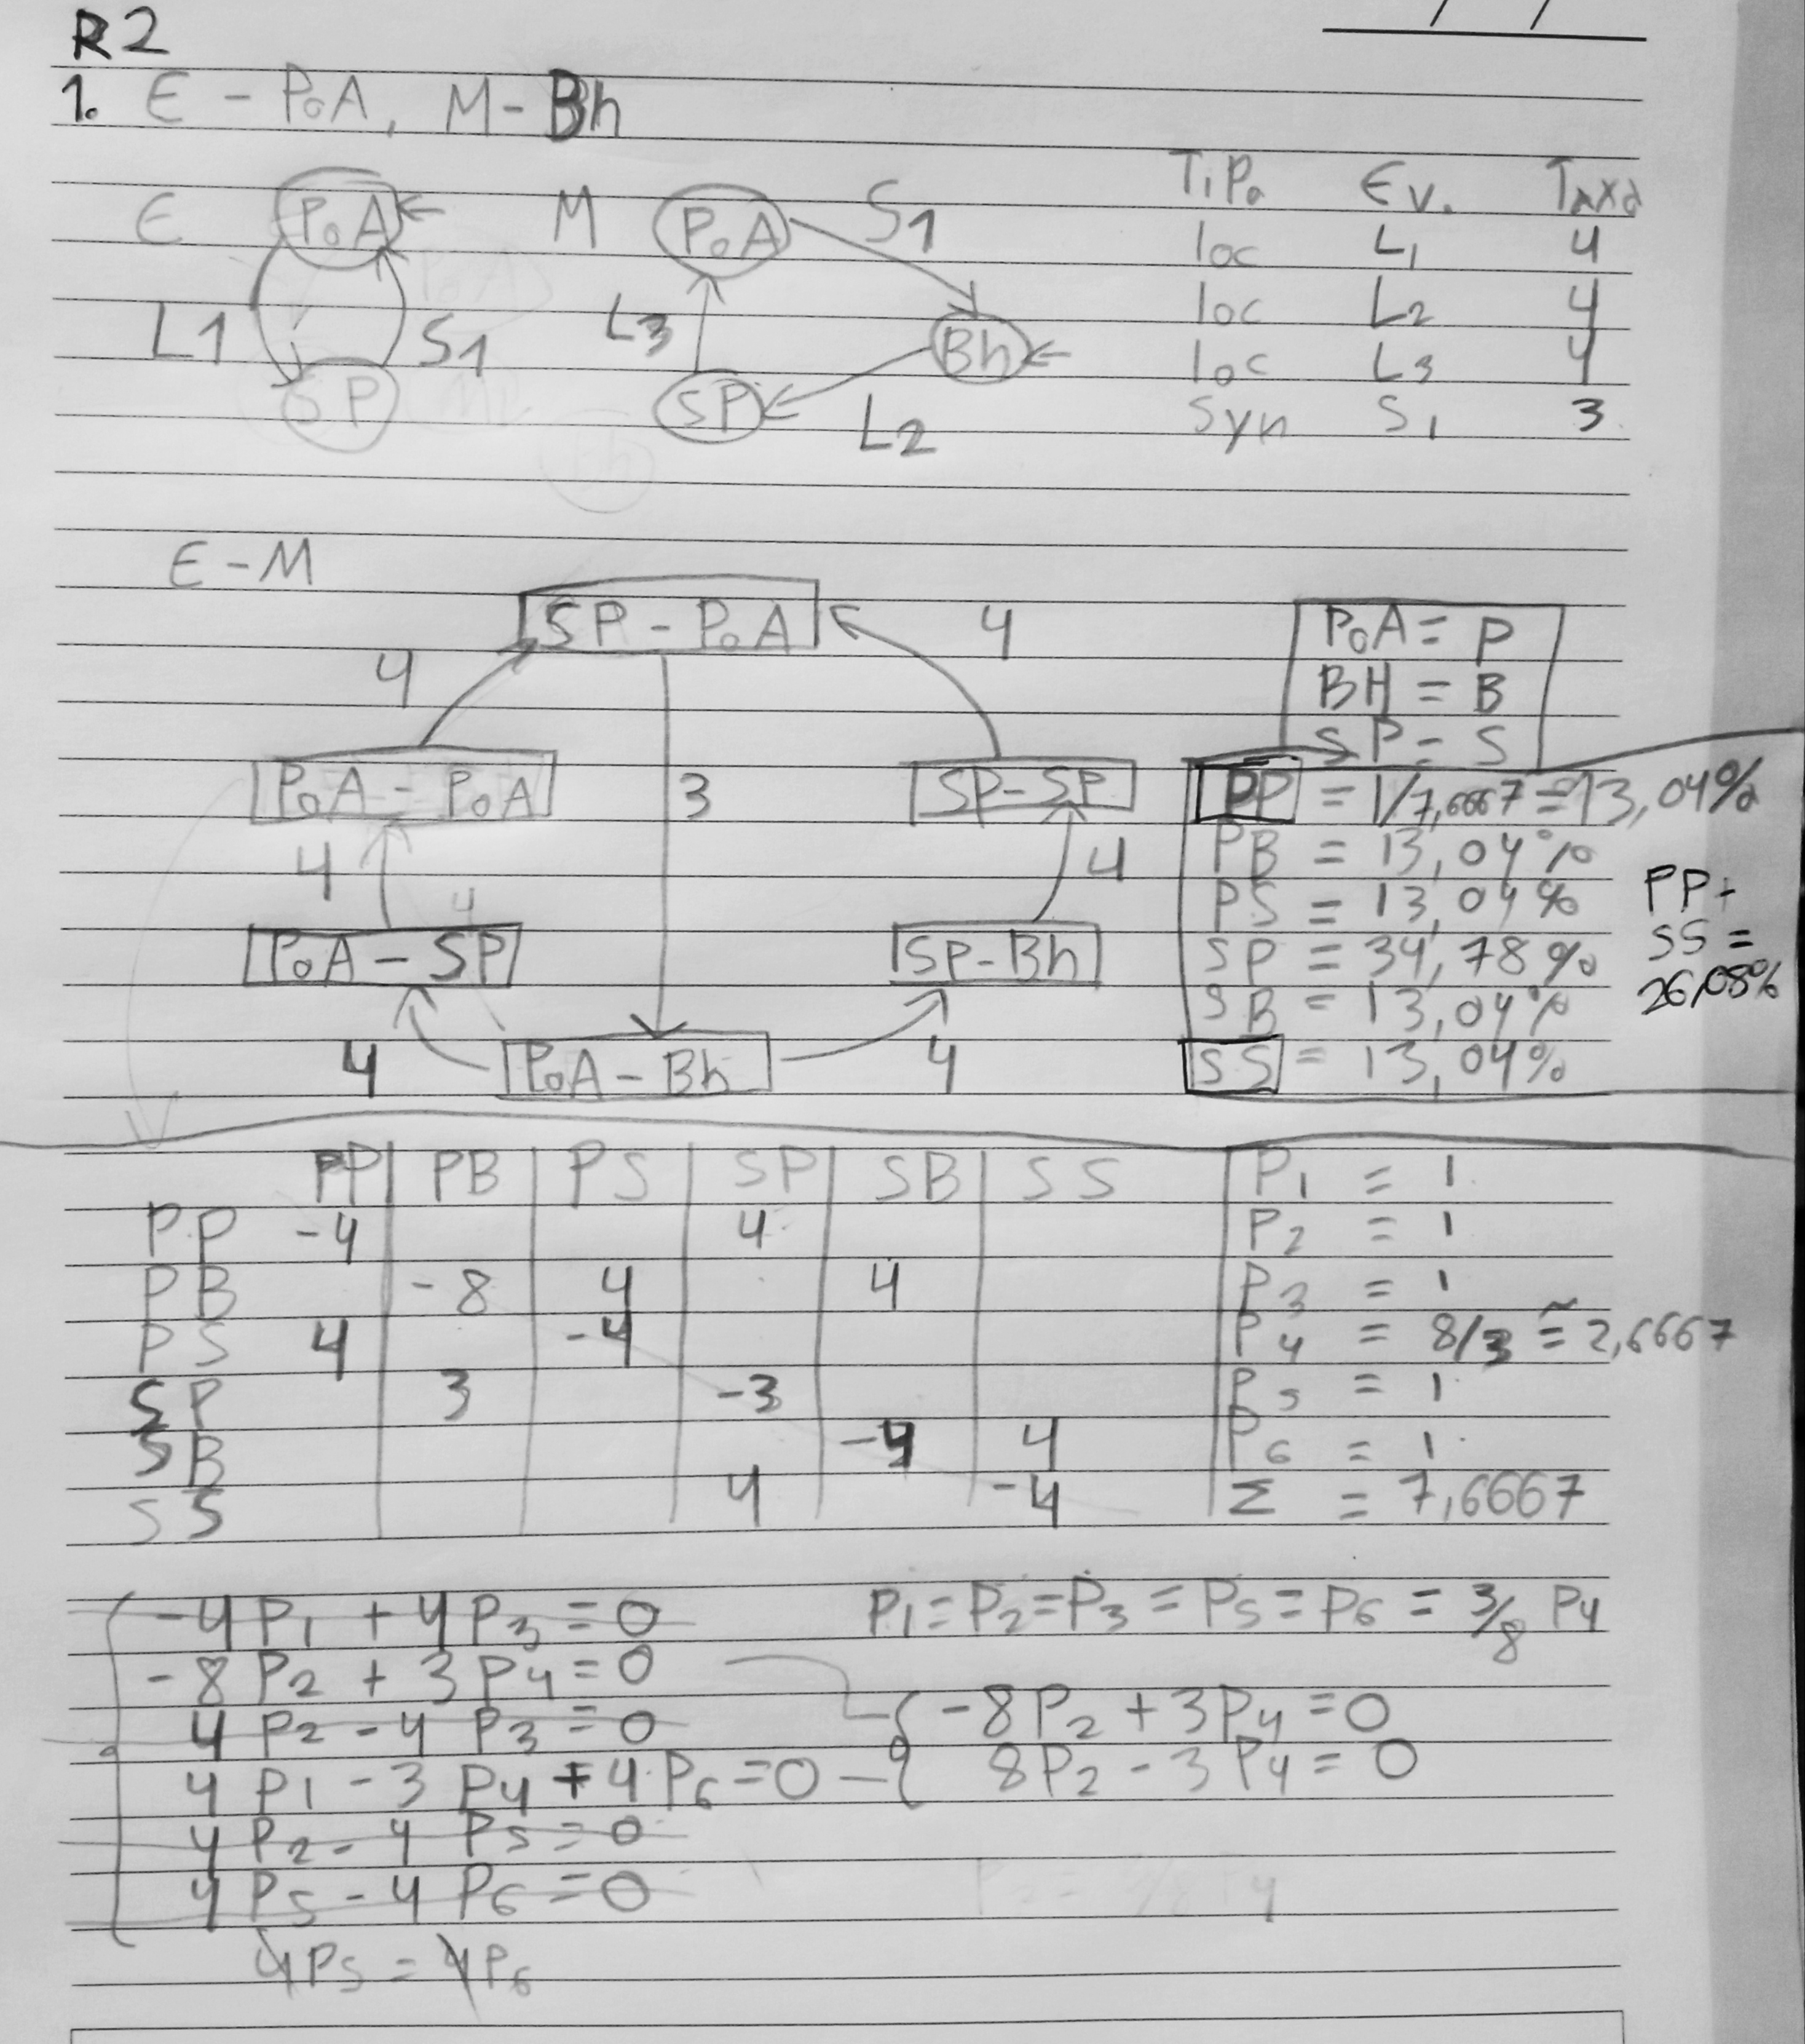 R2
1. E - PoA, M - Bh
E PoA M PoA S1
L1 S1 SP L3 SP Bh L2
Tipo Ev. Taxa
loc L1 4
loc L2 4
loc L3 4
Syn S1 3
E - M
SP - PoA
4 4
PoA - PoA 3 SP-SP
4 4
PoA - SP SP-Bh
4 PoA - Bh 4
PoA = P
BH = B
SP = S
PP = 1/7,6667 = 13,04%
PB = 13,04%
PS = 13,04%
SP = 34,78%
SB = 13,04%
SS = 13,04%
PP +
SS =
26,08%
PP PB PS SP SB SS
PP -4 4
PB -8 4 4
PS 4 -4
SP 3 -3
SB -4 4
SS 4 -4
P1 = 1
P2 = 1
P3 = 1
P4 = 8/3 ≅ 2,6667
P5 = 1
P6 = 1
Σ = 7,6667
-4 P1 + 4 P3 = 0
-8 P2 + 3 P4 = 0
4 P2 - 4 P3 = 0
4 P1 - 3 P4 + 4 P6 = 0
4 P2 - 4 P5 = 0
4 P5 - 4 P6 = 0
4P5 = 4P6
P1 = P2 = P3 = P5 = P6 = 3/8 P4
-8P2 + 3P4 = 0
8P2 - 3P4 = 0